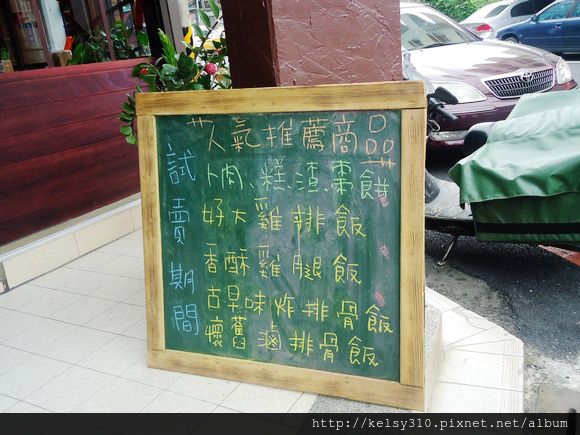 試賣期間
人氣推薦商品
卜肉、糕渣、棗餅
好大雞排飯
香酥雞腿飯
古早味炸排骨飯
懷舊滷排骨飯
http://kelsy310.pixnet.net/album